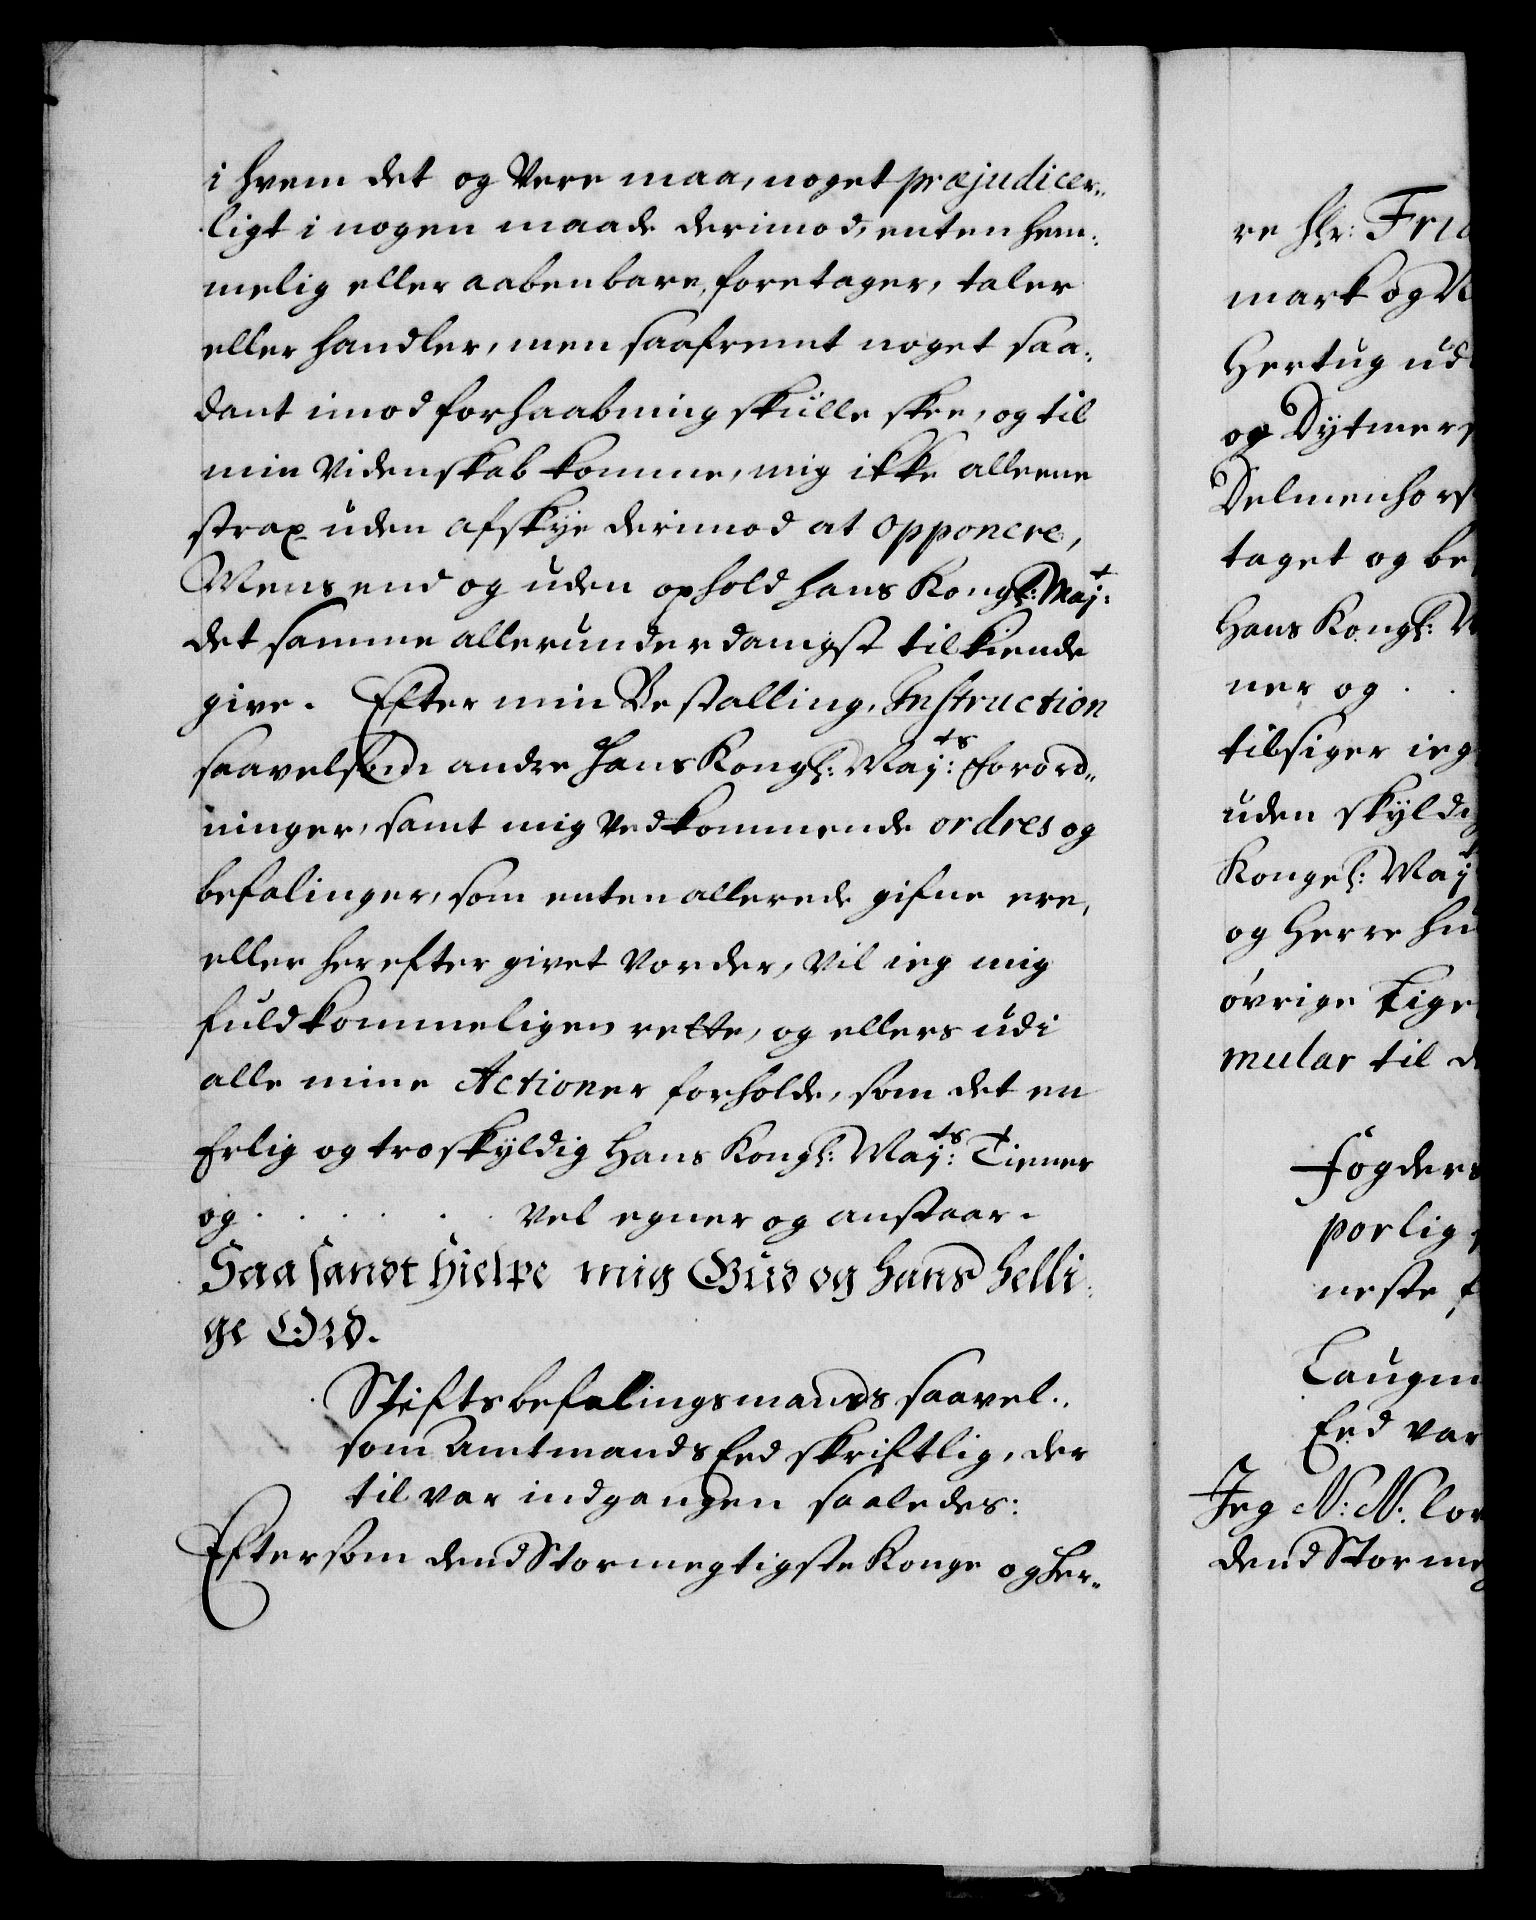 i hvem det og Vere maa, noget præjudicer„
ligt i nogen maade derimod, enten hem„
melig eller aabenbare, foretager, taler
eller handler, men saafremt noget saa„
dant imod forhaabning skulle skee, og til
min Videnskab komme, mig ikke alleene
strax uden afskye derimod at opponere,
Mens end og uden ophold hans Kongl: Maj:t
det samme allerunderdanigst tilkiende
give. Efter min Bestalling, Instruction
saavelsom andre Hans Kongl: May:ts Forord„
ninger, samt mig Vedkommende ordres og
befalinger, som enten allerede gifne ere,
eller herefter givet Vorder, Vil ieg mig
fuldkommeligen rette, og ellers udi
alle mine Actioner forholde, som det en
Erlig og troskyldig Hans Kongl: May:ts Tiener
og . . . . . . Vel egner og anstaar.
Saa sandt hielpe mig Gud og hans helli„
ge Ord.
Stiftsbefalingsmands saavel„
som Amtmands Eed skriftlig, der
til var indgangen saaledes:
Eftersom dend Stormegtigste Konge og Her„
re Hr: Frid
mark og N
Hertug ud
og Dytmers
Delmenhors
taget og be
Hans Kongl: M
ner og . .
tilsiger ieg
uden skyldig
Kongel: May:t
og Herre hu
øvrige Lige
mular til d
Fogders
porlig
neste f
Laugm
Eed var
Jeg N: N: lov
dend Storme